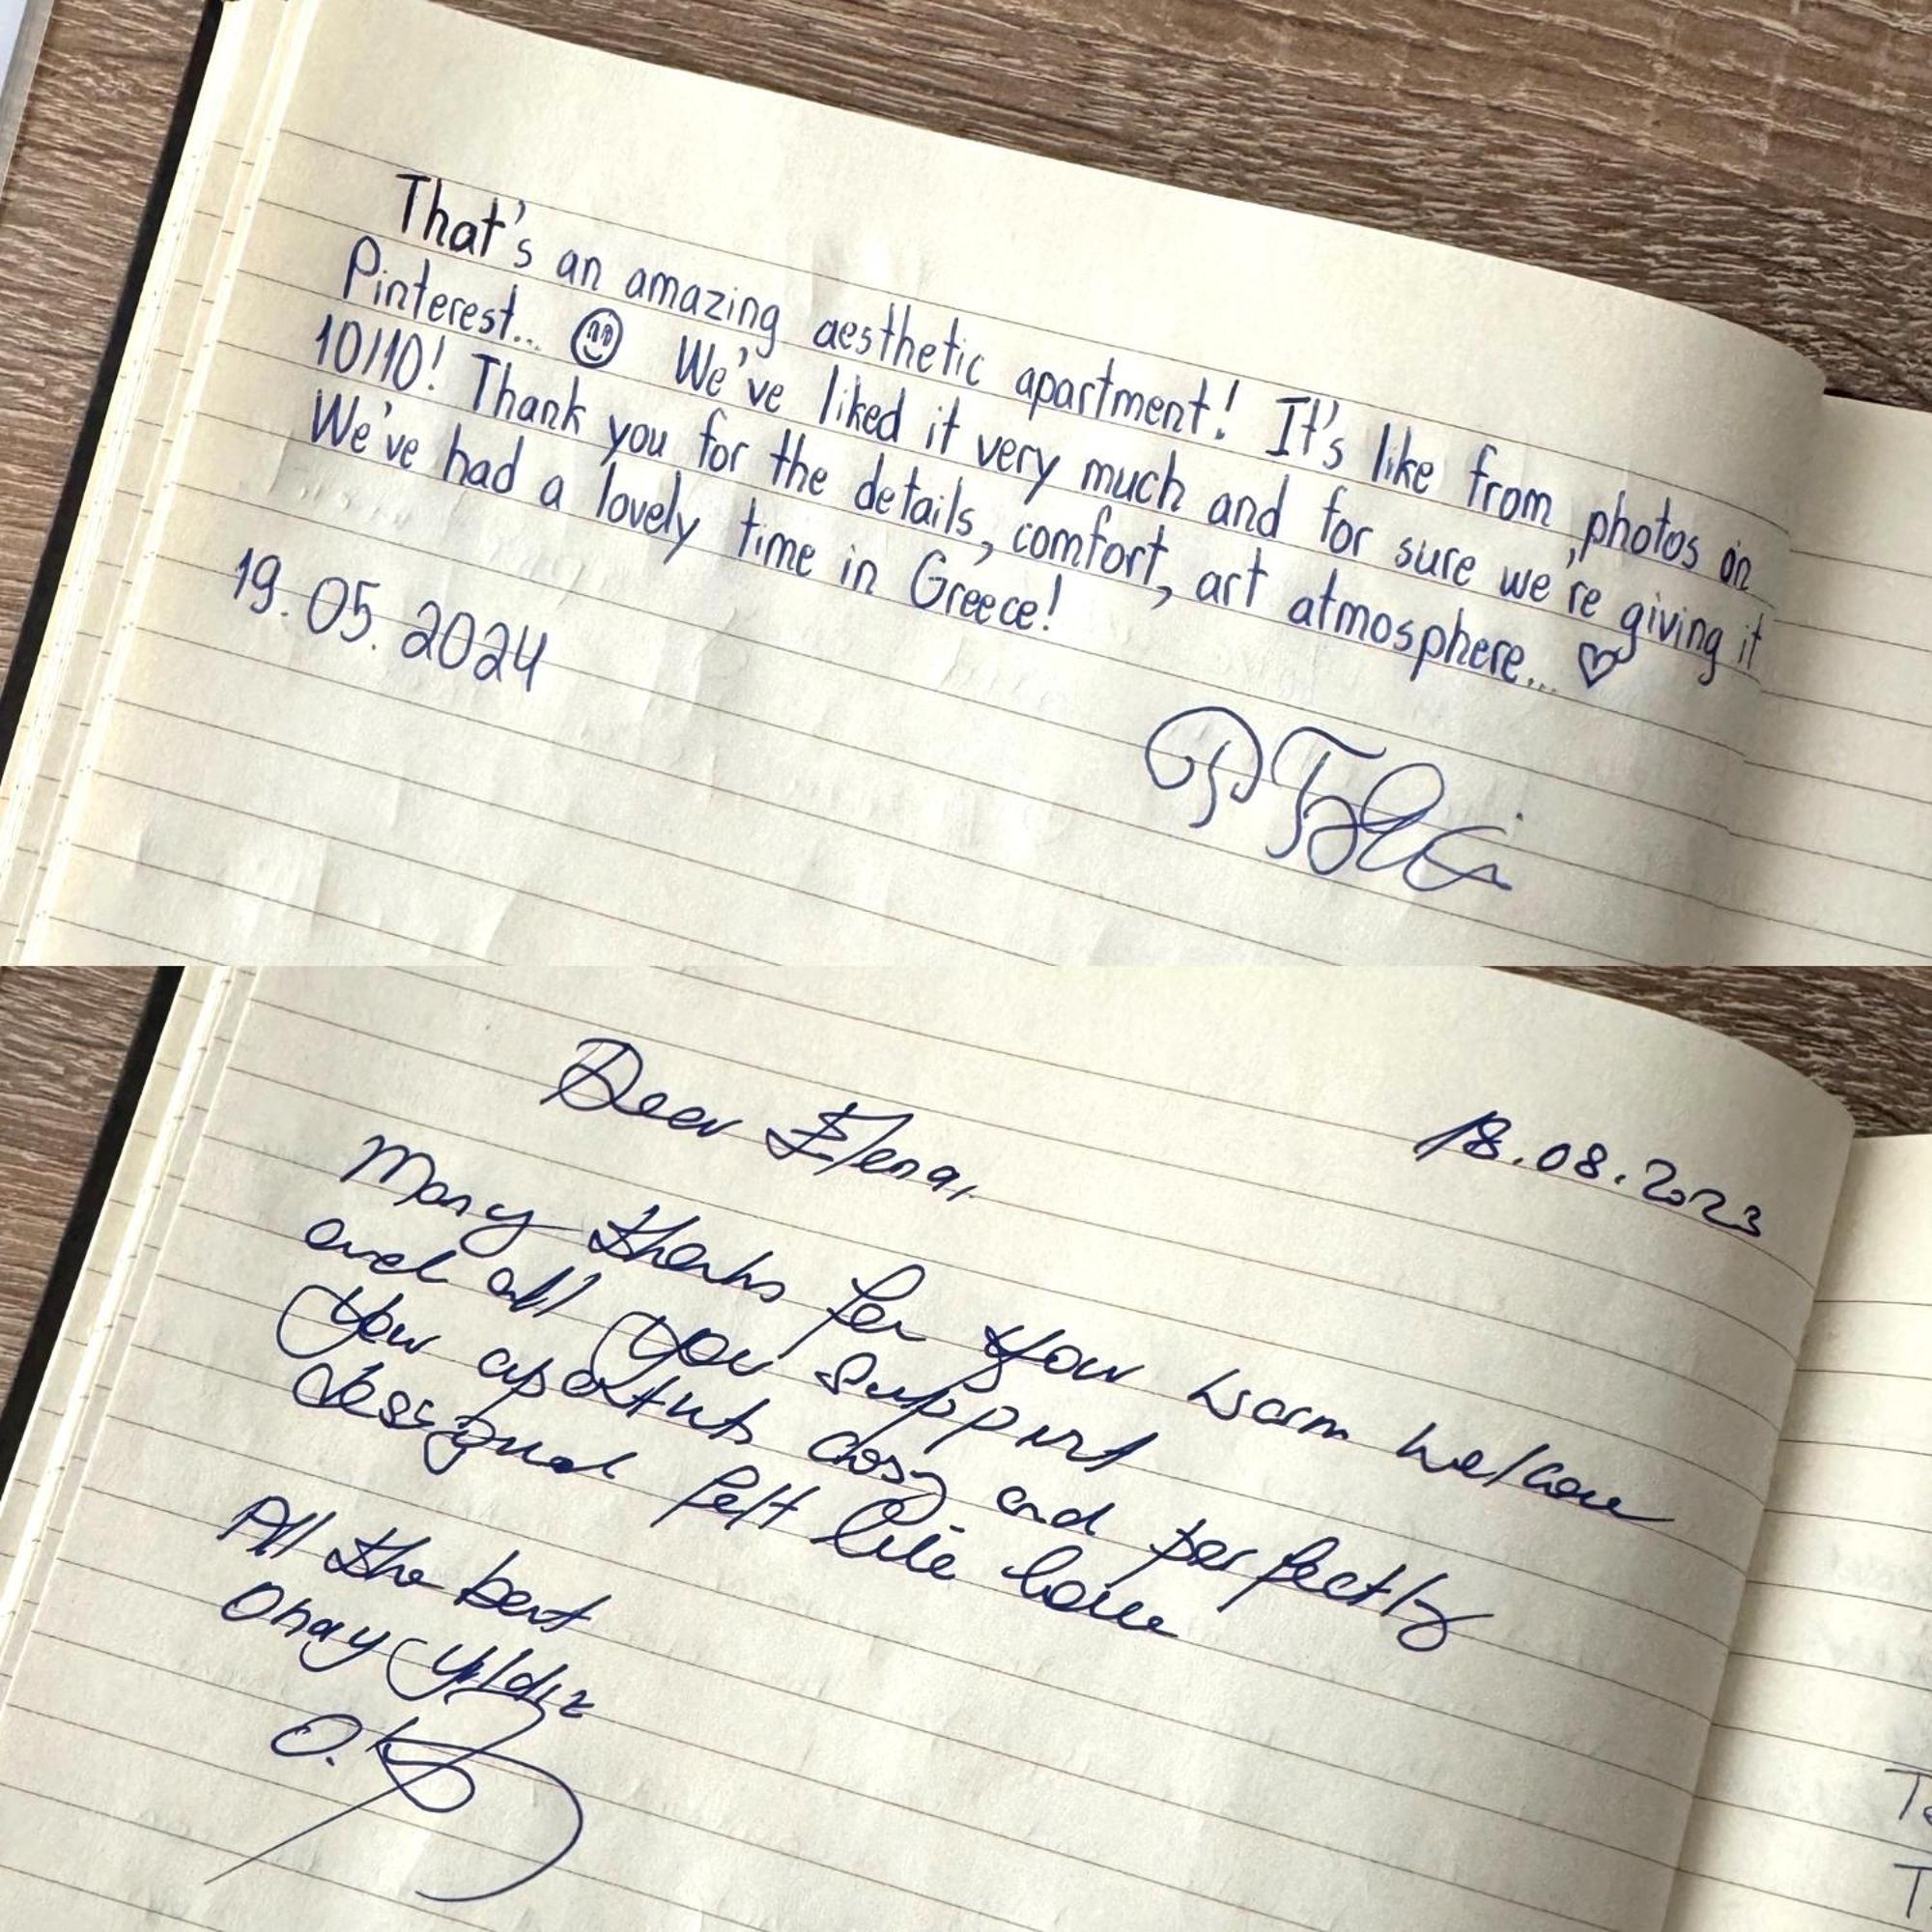 That's an amazing aesthetic apartment! It's like from photos on
Pinterest... We've liked it very much and for sure we're giving it
10/10! Thank you for the details, comfort, art atmosphere... ♡
We've had a lovely time in Greece!
19.05.2024
18.08.2023
Dear Elena,
Many thanks for your warm welcome
and all your support
Your apartment cosy and perfectly
designed felt like home
All the best
Onay Yildiz
O.